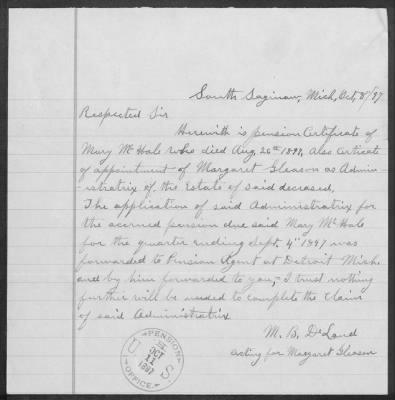 South Saginaw, Mich, Oct, 8/97
Respected Sir
Herewith is pension Certificate of
Mary McHale who died Aug, 26th 1897, also certicate
of appointment of Margaret Gleason as Admin-
-istratrix of the Estate of said deceased,
The application of said Administratrix for
the accrued pension due said Mary McHale
for the quarter ending Sept. 4th 1897 was
forwarded to Pension Agent at Detroit Mich.
and by him forwarded to you,- I trust nothing
further will be needed to complete the claim
of said Administratrix
M. B. DeLand
acting for Margaret Gleason
U.S. PENSION OFFICE.
OCT
11
1897